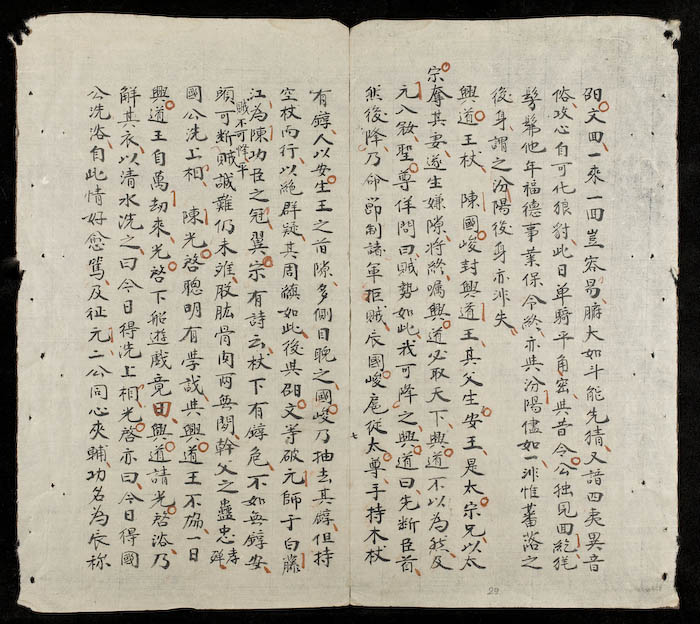 邵文回一來一回豈容易膽大如斗能先猜又諳四夷異音
俗攻心自可化狼豺此日单騎平角密共昔令公独見回紇
髣髴他年福德事業保令終亦共汾陽儘如一非惟蕃落之
後身謂之汾陽後身亦非失
興道王杖 陳國峻封興道王其父生安王是太宗兄以太
宗奪其妻遂生嫌隙將終嘱興道必取天下興道不以為然及
元入聖尊佯問曰賊勢如此我可降之興道曰先断臣首
然後降乃命節制諸軍拒賊辰國峻扈從太尊手持木杖
有錞人以安生王之首隙多側目晚之國峻乃抽去其錞但持
空杖而行以絕群疑其周縝如此後共邵文等破元師于白藤
江為陳功臣之冠翼宗有詩云杖下有錞危不如無錞安
賊不可降平
頭可断賊誠難仍未股肱骨肉两無間幹父之蠱忠孝殫
國公洗上相 陳光啓聰明有學識共興道王不協一日
興道王自萬劫來光啓下船遊戲竟日興道請光啓浴乃
解其衣以清水洗之曰今日得洗上相光啓亦曰今日得國
公洗浴自此情好愈篤及征元二公同心夾輔功名為辰称
29